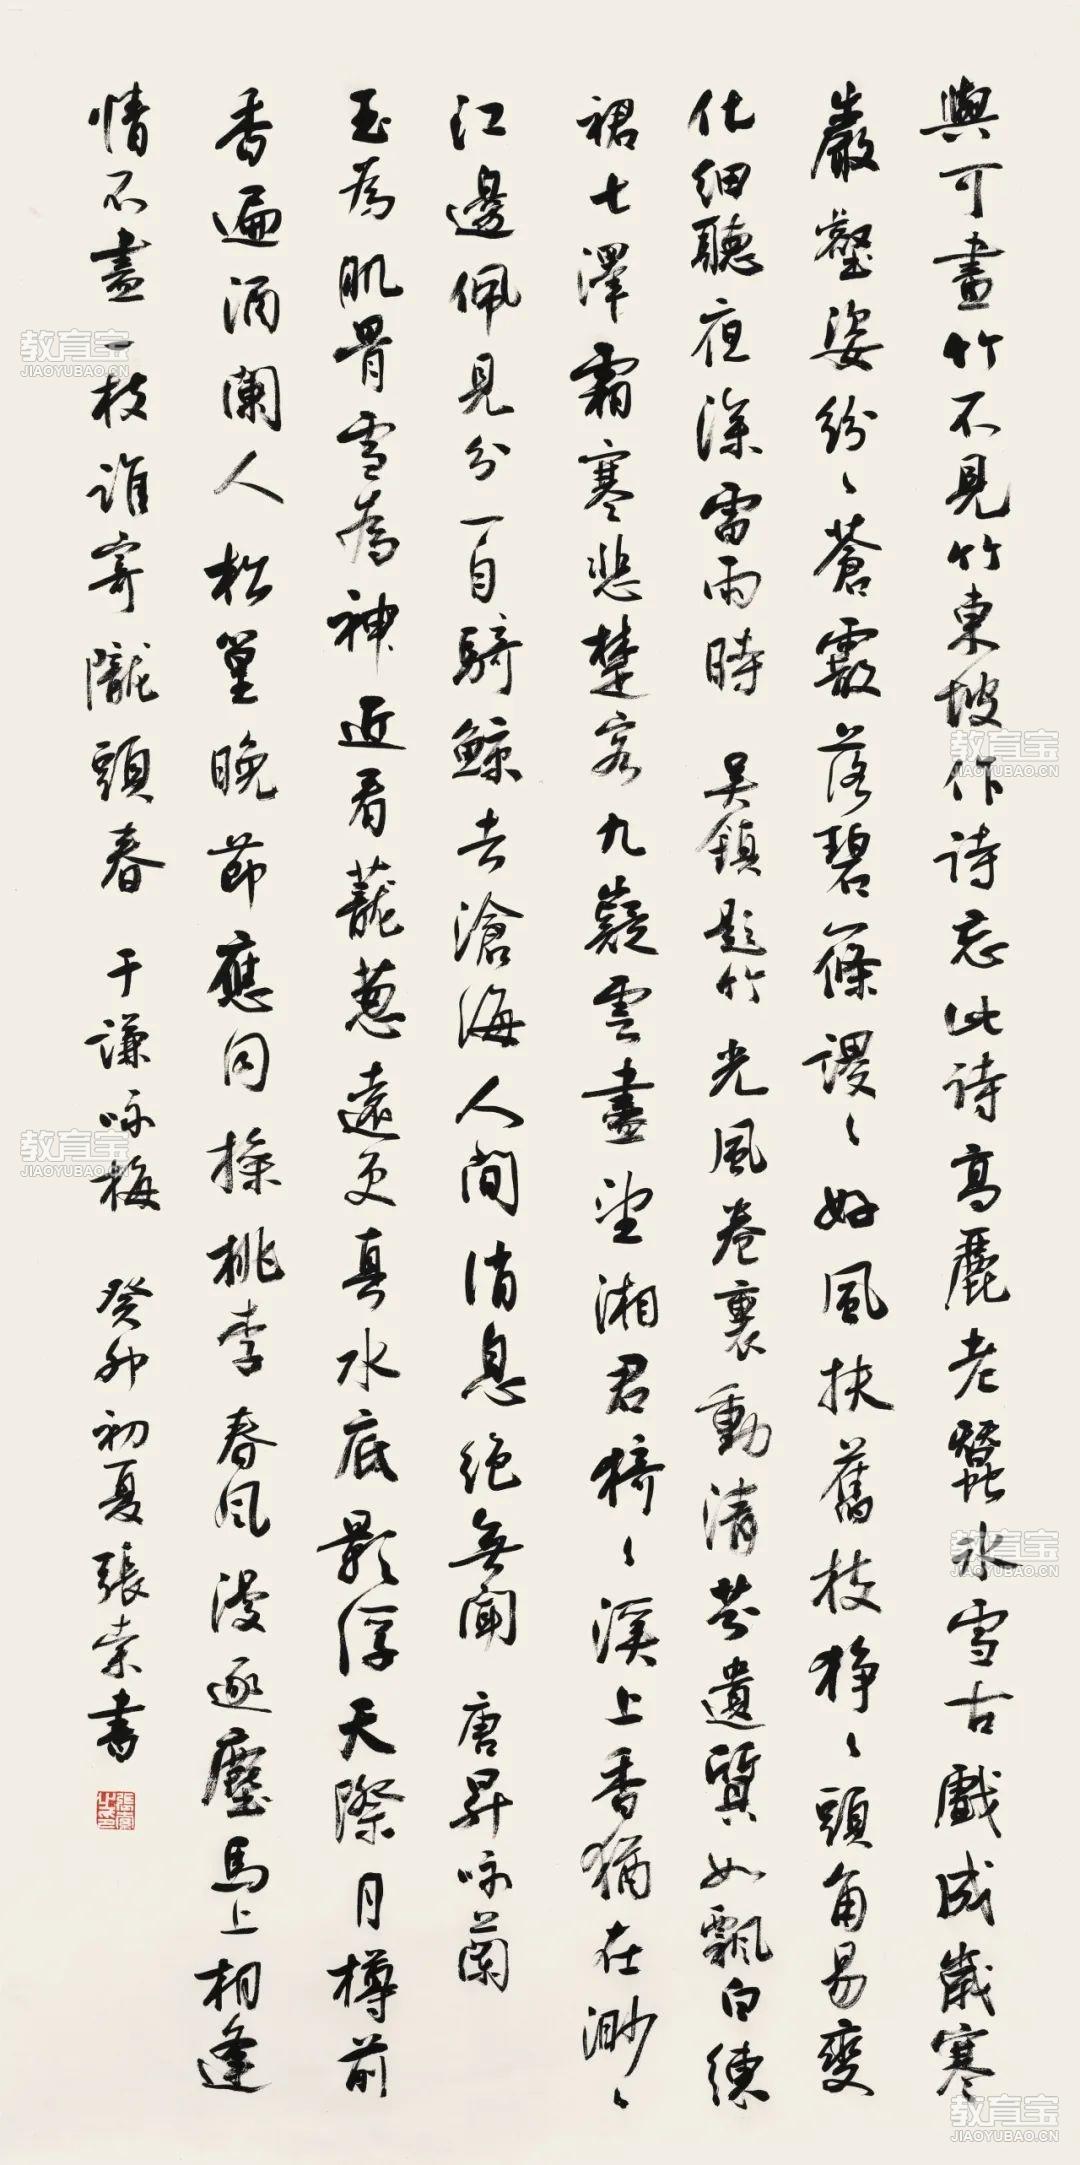 與可畫竹不見竹東坡作詩忘此詩高麗老蠶冰雪古戲成歲寒
巖壑姿紛紛蒼霰落碧篠謖謖好風扶舊枝猙猙頭角易變
化細聽夜深雷雨時 吳鎮題竹 光風卷裏動清芬遺質如飄白練
裙七澤霜寒悲楚客九嶷雲盡望湘君猗猗溪上香猶在渺渺
江邊佩見分一自騎鯨去滄海人間消息絕無聞 唐昇詠蘭
玉為肌骨雪為神近看蘢蔥遠更真水底影浮天際月樽前
香遍酒闌人松篁晚節應同操桃李春風漫逐塵馬上相逢
情不盡一枝誰寄隴頭春 于謙詠梅 癸卯初夏張索書
教育宝
JIAOYUBAO.CN
教育宝
JIAOYUBAO.CN
教育宝
JIAOYUBAO.CN
教育宝
JIAOYUBAO.CN
教育宝
JIAOYUBAO.CN